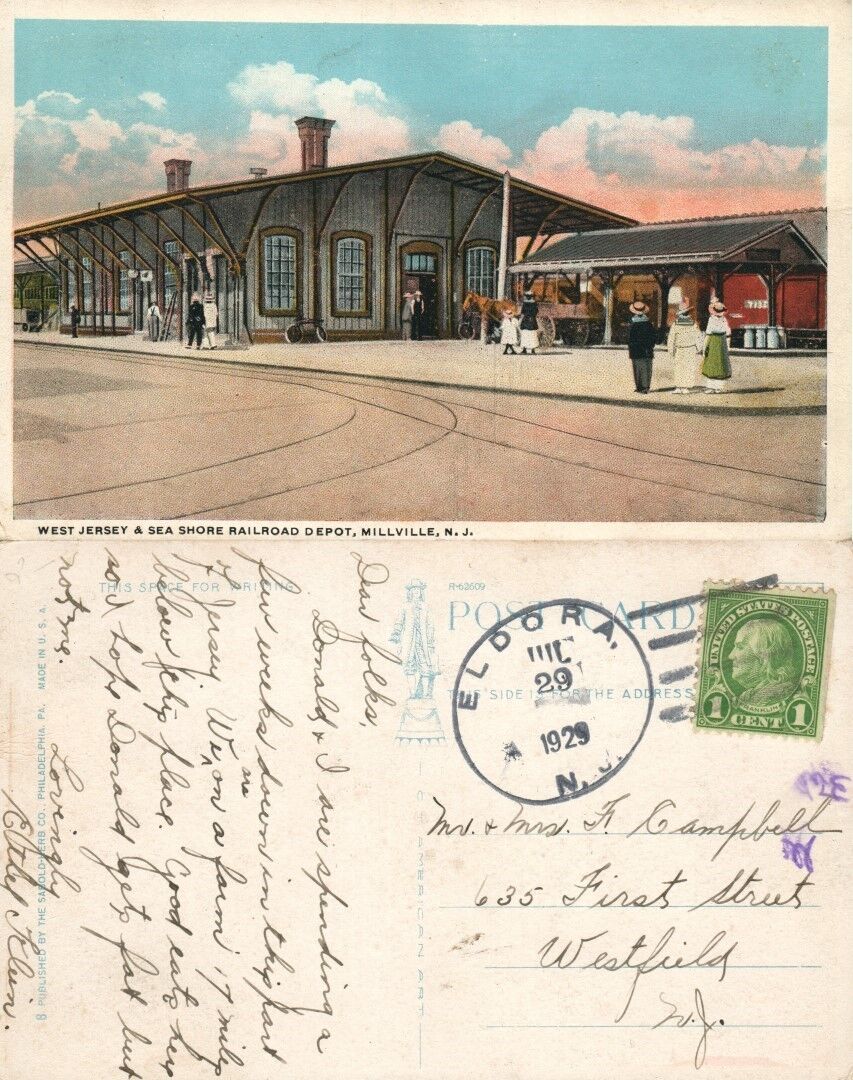 WEST JERSEY & SEA SHORE RAILROAD DEPOT, MILLVILLE, N. J.
THIS SPACE FOR WRITING
R-62609
POST CARD
THIS SIDE IS FOR THE ADDRESS
ELDORA,
29
1929
N. J.
UNITED STATES POSTAGE
FRANKLIN
1 CENT 1
Dear folks,
Donald & I are spending a
few weeks down in this part
of Jersey. We are on a farm 17 miles
below this place. Good eats here
and I hope Donald gets fat but
not me.
Lovingly
Klein.
Mr. & Mrs. F. Campbell
635 First Street
Westfield
N.J.
8 PUBLISHED BY THE SABOLD-HERB CO., PHILADELPHIA, PA. MADE IN U. S. A.